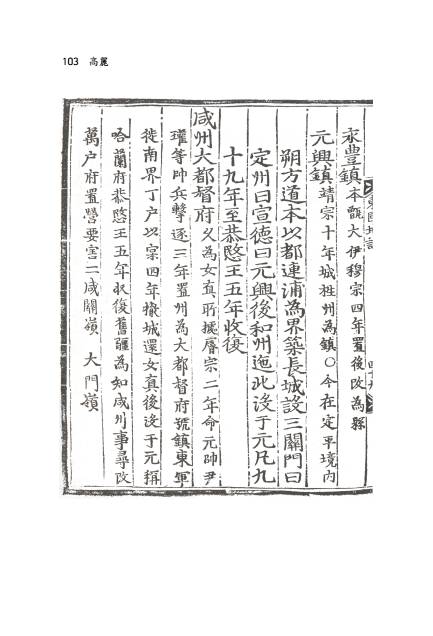 103 高麗
永豊鎮 本甑大伊穆宗四年置後改為縣
元興鎮 靖宗十年城牲州為鎮○今在定平境內
朔方道本以都連浦為界築長城設三關門曰
定州曰宣德曰元興後和州迤北沒于元凡九
十九年至恭愍王五年收復
咸州大都督府 乂為女真所據睿宗二年命元帥尹
瓘等帥兵擊逐三年置州為大都督府號鎮東軍
徙南界丁戶以宲四年撤城還女真後沒于元稱
哈蘭府恭愍王五年收復舊疆為知咸州事尋改
萬户府置營要害二咸關嶺 大門嶺